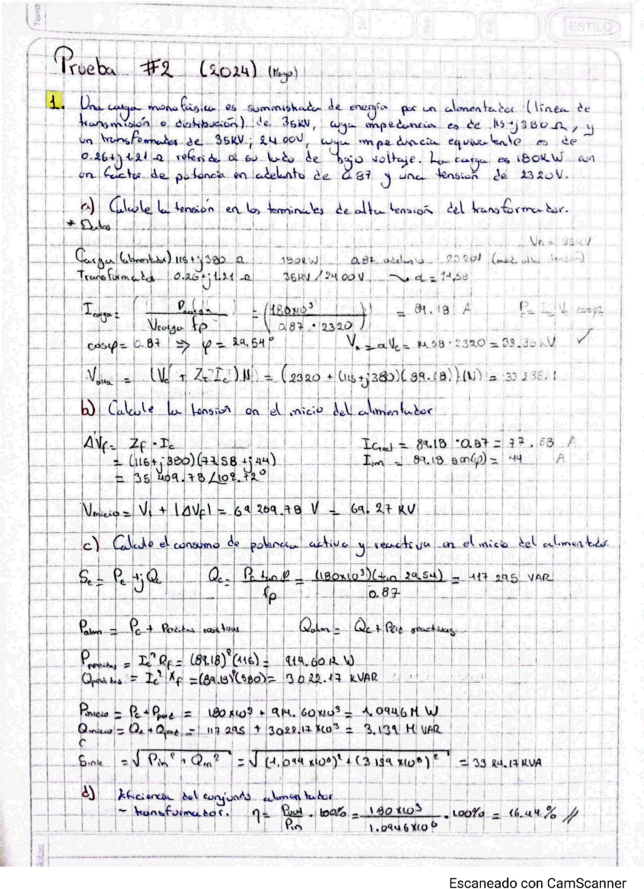 ESTILO
Prueba #2 (2024) (Mayo)
1. Una carga monofásica es suministrada de energía por un alimentador (línea de
transmisión o distribución) de 35KV, cuya impedancia es de 115+j380 Ω, y
un transformador de 35KV; 2400V, cuya impedancia equivalente es de
0.26+j1.21 Ω referida al su lado de bajo voltaje. La carga es 180KW con
un factor de potencia en adelanto de 0.87 y una tensión de 2320V.
a) Calcule la tensión en los terminales de alta tensión del transformador.
* Datos
Carga (alimentador) 115+j380 Ω 180KW 0.87 adelanto 2320V
Transformador 0.26+j1.21 Ω 35KV/2400V → a = 14,58
Icarga = (Pcarga / Vcarga fp) = (180x10³ / 0.87 · 2320) = 89.18 A
cosφ = 0.87 ⇒ φ = 29.54° = aVc = 14.58 · 2320 = KV ✓
Valta = (Vc + ZT Ic)(N) = (2320 + (115+j380)(89.18))(N) =
b) Calcule la tension en el inicio del alimentador
ΔVf = Zf · Ic Ic = 89.18 · 0.87 = 77.58 A
= (115+j380)(77.58+j44) Iim = 89.18 sen(φ) = 44 A
= 35 409.78 ∠102.72°
Vinicio = V + |ΔVf| = 69 269.78 V = 69.27 KV
c) Calcule el consumo de potencia activa y reactiva en el inicio del alimentador.
Sc = Pc + jQc Qc = Pc tan φ / fp = (180x10³)(tan 29.54) / 0.87 = 117 295 VAR
Palim = Pc + Perdidas resistivas Qalim = Qc + Per reactivas
Pperdidas = Ic² Rf = (89.18)²(115) = 914.60 K W
Qperdidas = Ic² Xf = (89.18)²(380) = 3022.17 KVAR
Pinicio = Pc + Pperd = 180x10³ + 914.60x10³ = 1.0946 M W
Qinicio = Qc + Qperd = 117 295 + 3022.17x10³ = 3.139 M VAR
Sinic = √(Pin² + Qin²) = √((1.094 x10⁶)² + (3.139 x10⁶)²) = 3324.17 KVA
d) Eficiencia del conjunto alimentador
- transformador. η = Pout / Pin · 100% = 180x10³ / 1.0946x10⁶ · 100% = 16.44% //
Escaneado con CamScanner